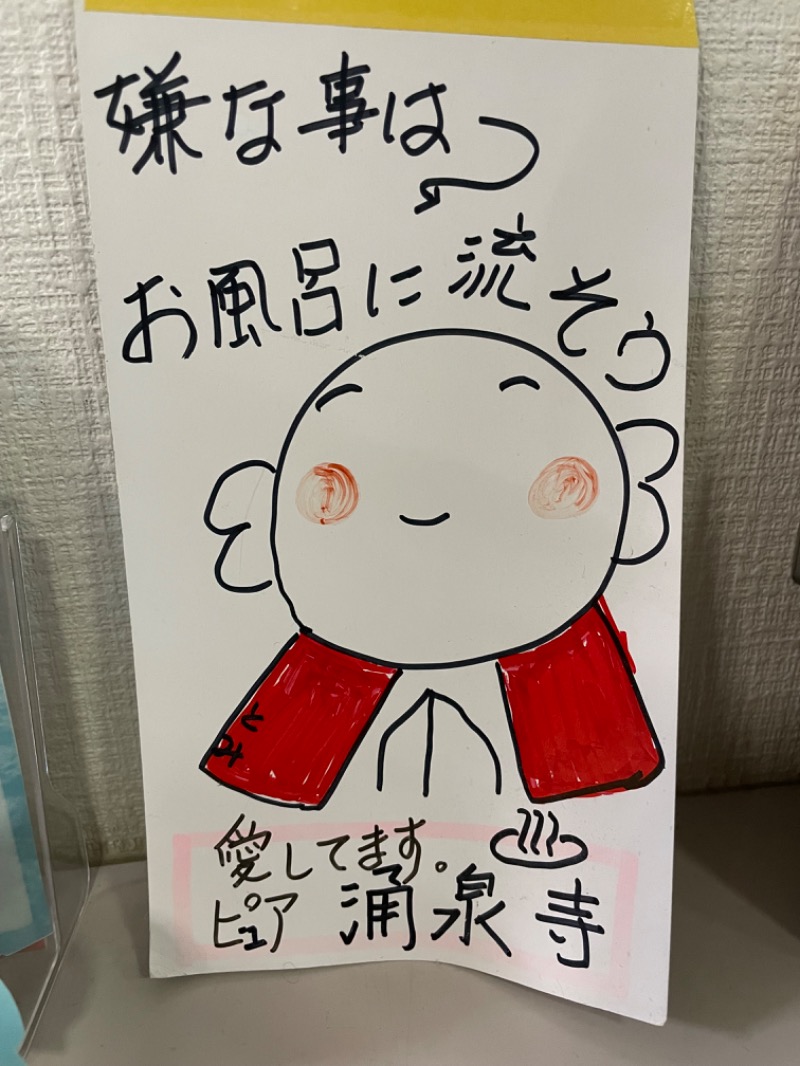 嫌な事は
お風呂に流そう
とみ
愛してます。
ピュア 涌泉寺